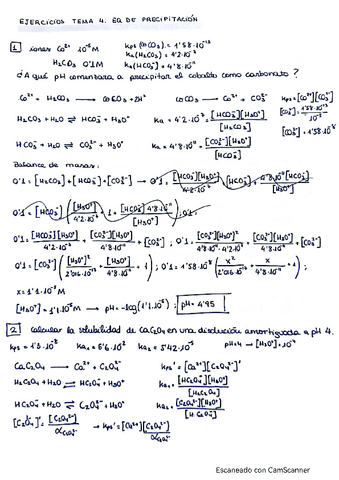 EJERCICIOS TEMA 4. EQ DE PRECIPITACIÓN
1 iones Co²⁺ 10⁻⁵ M Kps (CoCO₃) = 1'58·10⁻¹³
H₂CO₃ 0'1M Ka (H₂CO₃) = 4'2·10⁻⁷
Ka (HCO₃⁻) = 4'8·10⁻¹¹
¿A qué pH comenzara a precipitar el cobalto como carbonato?
Co²⁺ + H₂CO₃ → CoCO₃ + 2H⁺ CoCO₃ → Co²⁺ + CO₃²⁻ Kps = [Co²⁺][CO₃²⁻]
H₂CO₃ + H₂O ⇌ HCO₃⁻ + H₃O⁺ Ka = 4'2·10⁻⁷ = [HCO₃⁻][H₃O⁺] / [H₂CO₃]
[CO₃²⁻] = 1'58·10⁻⁸
HCO₃⁻ + H₂O ⇌ CO₃²⁻ + H₃O⁺ Ka = 4'8·10⁻¹¹ = [CO₃²⁻][H₃O⁺] / [HCO₃⁻]
Balance de masas:
0'1 = [H₂CO₃] + [HCO₃⁻] + [CO₃²⁻]
0'1 = [HCO₃⁻][H₃O⁺] / 4'2·10⁻⁷ + [CO₃²⁻][H₃O⁺] / 4'8·10⁻¹¹ + [CO₃²⁻] ; 0'1 = [CO₃²⁻][H₃O⁺]² / 4'8·10⁻¹¹·4'2·10⁻⁷ + [CO₃²⁻][H₃O⁺] / 4'8·10⁻¹¹ + [CO₃²⁻]
0'1 = [CO₃²⁻] ( [H₃O⁺]² / 2'016·10⁻¹⁷ + [H₃O⁺] / 4'8·10⁻¹¹ + 1 ) ; 0'1 = 1'58·10⁻⁸ ( x² / 2'016·10⁻¹⁷ + x / 4'8·10⁻¹¹ + 1 ) ;
x = 1'1·10⁻⁵ M
[H₃O⁺] = 1'1·10⁻⁵ M → pH = -log (1'1·10⁻⁵) ; pH = 4'95
2 Calcular la solubilidad de CaC₂O₄ en una disolución amortiguada a pH 4.
Kps = 1'3·10⁻⁸ Ka₁ = 5'6·10⁻² Ka₂ = 5'42·10⁻⁵ pH=4 → [H₃O⁺] = 10⁻⁴
CaC₂O₄ → Ca²⁺ + C₂O₄²⁻ Kps' = [Ca²⁺][C₂O₄²⁻]'
H₂C₂O₄ + H₂O ⇌ HC₂O₄⁻ + H₃O⁺ Ka₁ = [HC₂O₄⁻][H₃O⁺] / [H₂C₂O₄]
HC₂O₄⁻ + H₂O ⇌ C₂O₄²⁻ + H₃O⁺ Ka₂ = [C₂O₄²⁻][H₃O⁺] / [HC₂O₄⁻]
[C₂O₄²⁻]' = [C₂O₄²⁻] / α C₂O₄²⁻ → Kps' = [Ca²⁺][C₂O₄²⁻] / α C₂O₄²⁻
Escaneado con CamScanner